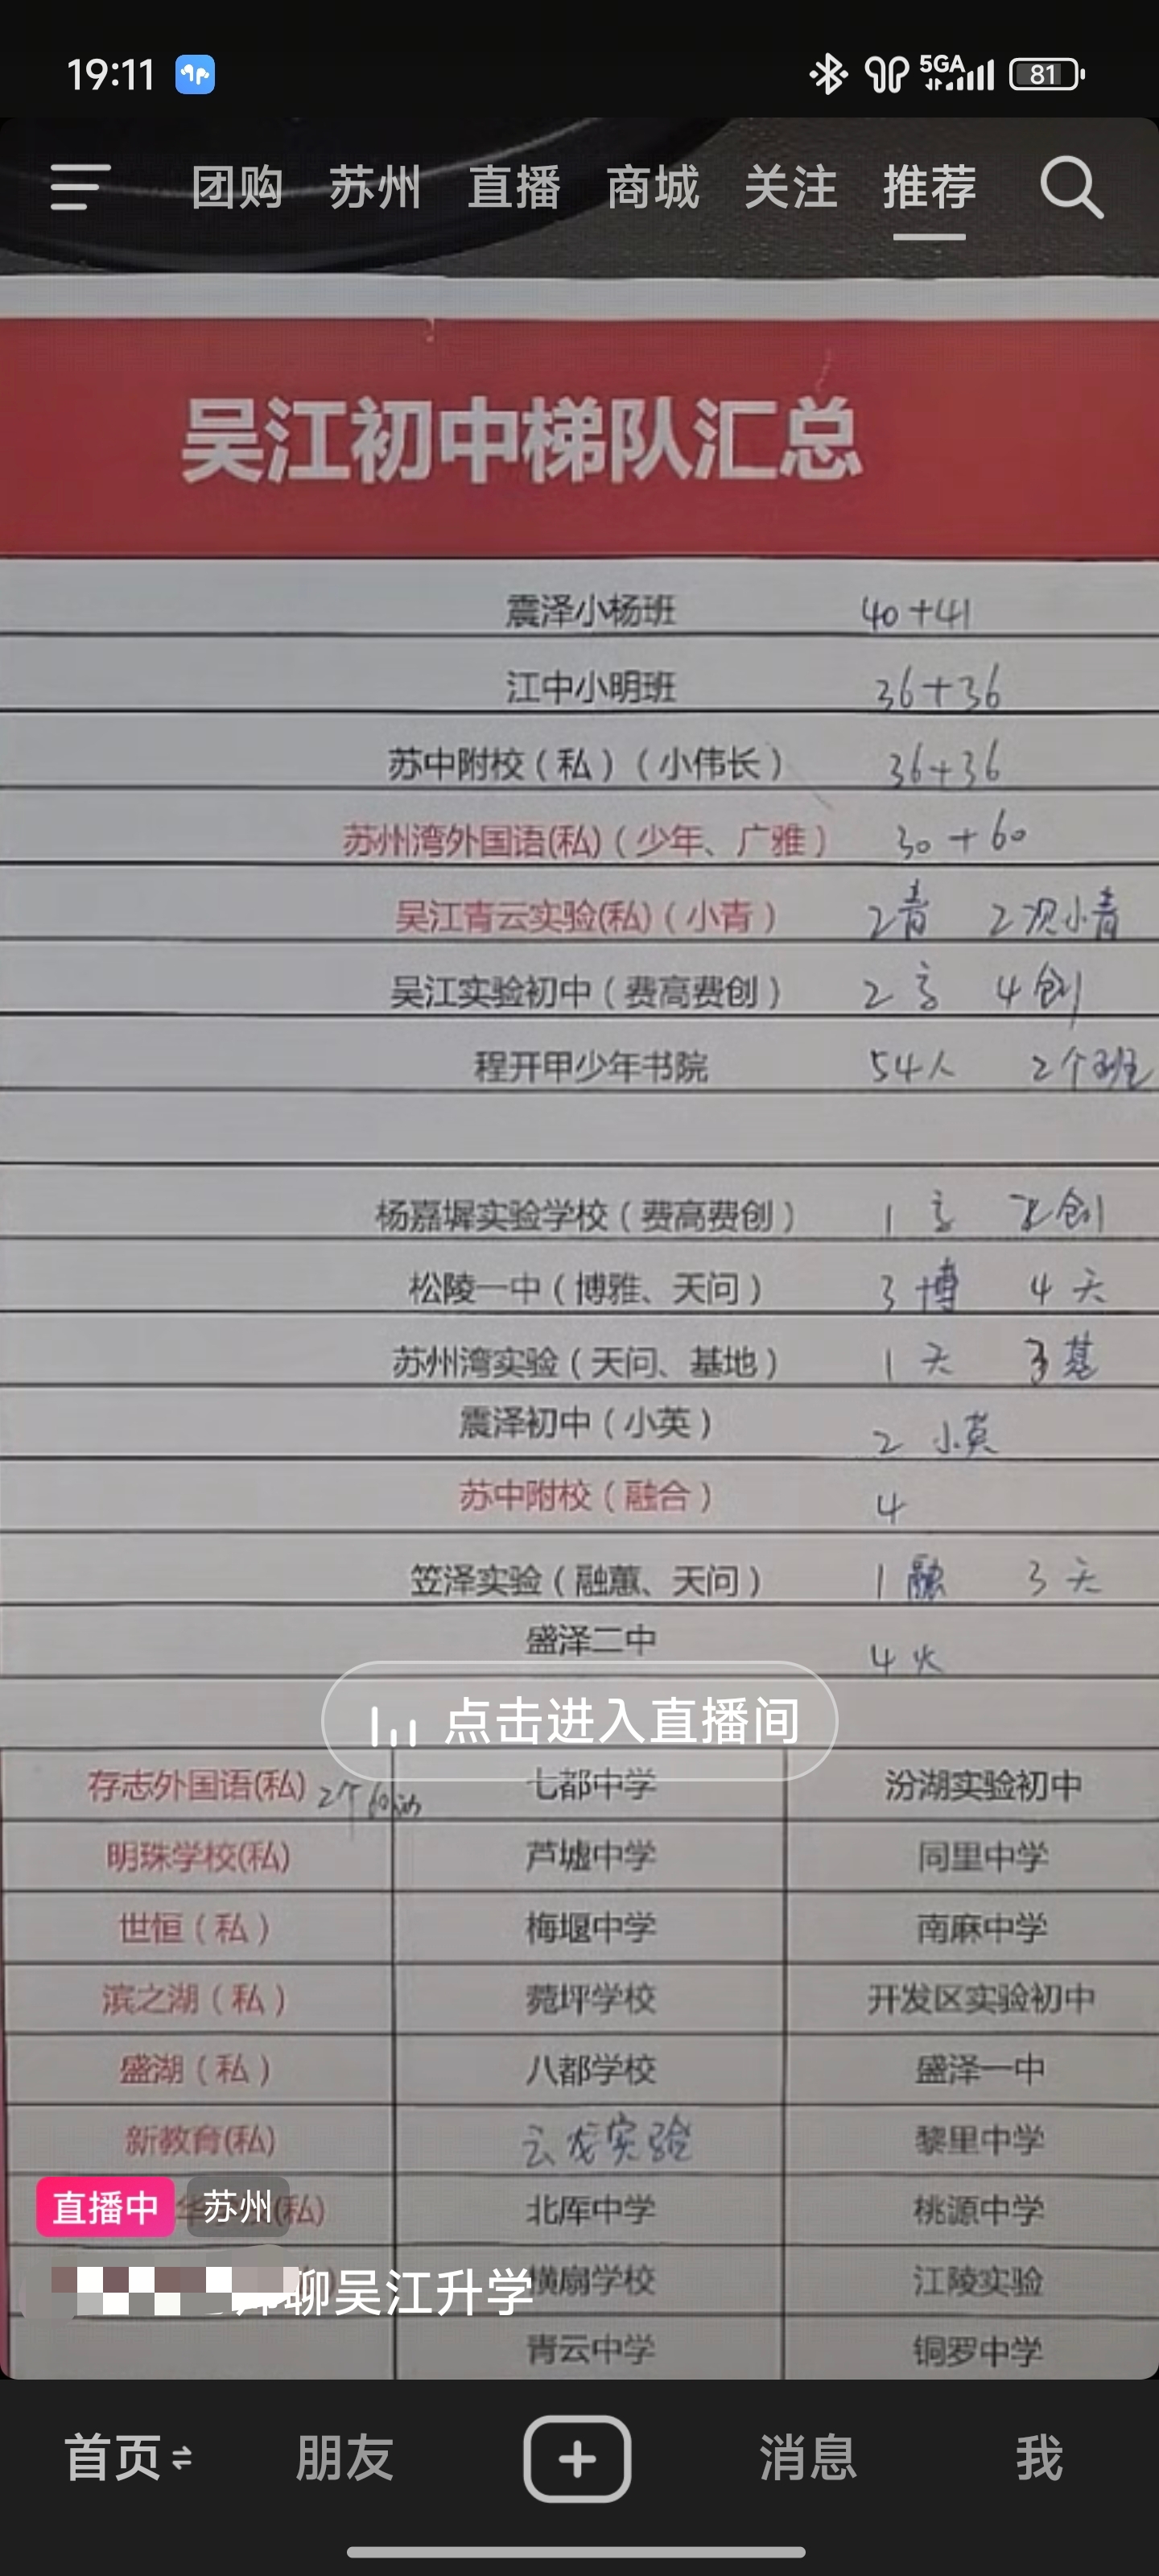 19:11 5GA 81
团购 苏州 直播 商城 关注 推荐
吴江初中梯队汇总
震泽小杨班 40+41
江中小明班 36+36
苏中附校（私）（小伟长） 36+36
苏州湾外国语(私)（少年、广雅） 30+60
吴江青云实验(私)（小青） 2青 2次小青
吴江实验初中（费高费创） 2高 4创
程开甲少年书院 54人 2个班
杨嘉墀实验学校（费高费创） 1高 创
松陵一中（博雅、天问） 3博 4天
苏州湾实验（天问、基地） 1天 3基
震泽初中（小英） 2小英
苏中附校（融合） 4
笠泽实验（融蕙、天问） 1融 3天
盛泽二中 4火
点击进入直播间
存志外国语(私) 2个 七都中学 汾湖实验初中
明珠学校(私) 芦墟中学 同里中学
世恒（私） 梅堰中学 南麻中学
滨之湖（私） 菀坪学校 开发区实验初中
盛湖（私） 八都学校 盛泽一中
新教育(私) 云龙实验 黎里中学
直播中 苏州 (私) 北厍中学 桃源中学
聊吴江升学 横扇学校 江陵实验
青云中学 铜罗中学
首页 朋友 消息 我